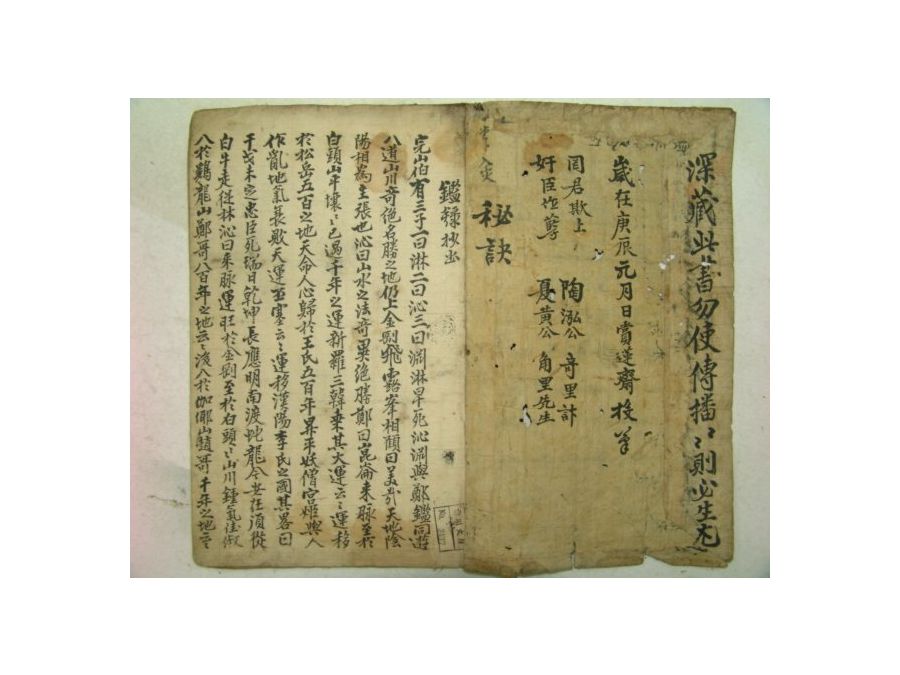 深藏此書勿使傳播〻則必生
歲在庚辰元月日賞蓮齋投筆
罔君欺上 陶泓公奇里計
奸臣 夏黃公角里先生
秘訣
鑑錄抄出
完山伯有三子一曰淋二曰沁三曰淵淋早死沁淵與鄭鑑同遊
八道山川奇絶名勝之地仍上金剛飛露峯相顧曰美哉天地陰
陽相爲主張也沁曰山水之法奇異絶勝鄭曰崑崙來脉至於
白頭山平壤〻已過千年之運新羅三韓乘其大運云〻運移
於松岳五百之地天命人心歸於王氏五百年昇平妖僧宮姬與人
作亂地氣衰敗天運丕塞云〻運移漢陽李氏之國其畧曰
干戈未定忠臣死瑞日乾坤長應明南渡蛇龍今安在須從
白牛走從林沁曰來脉運旺於金剛至於 山川鍾氣
入於鷄龍山鄭哥八百年之地云〻後入於伽倻山趙哥千年之地云〻